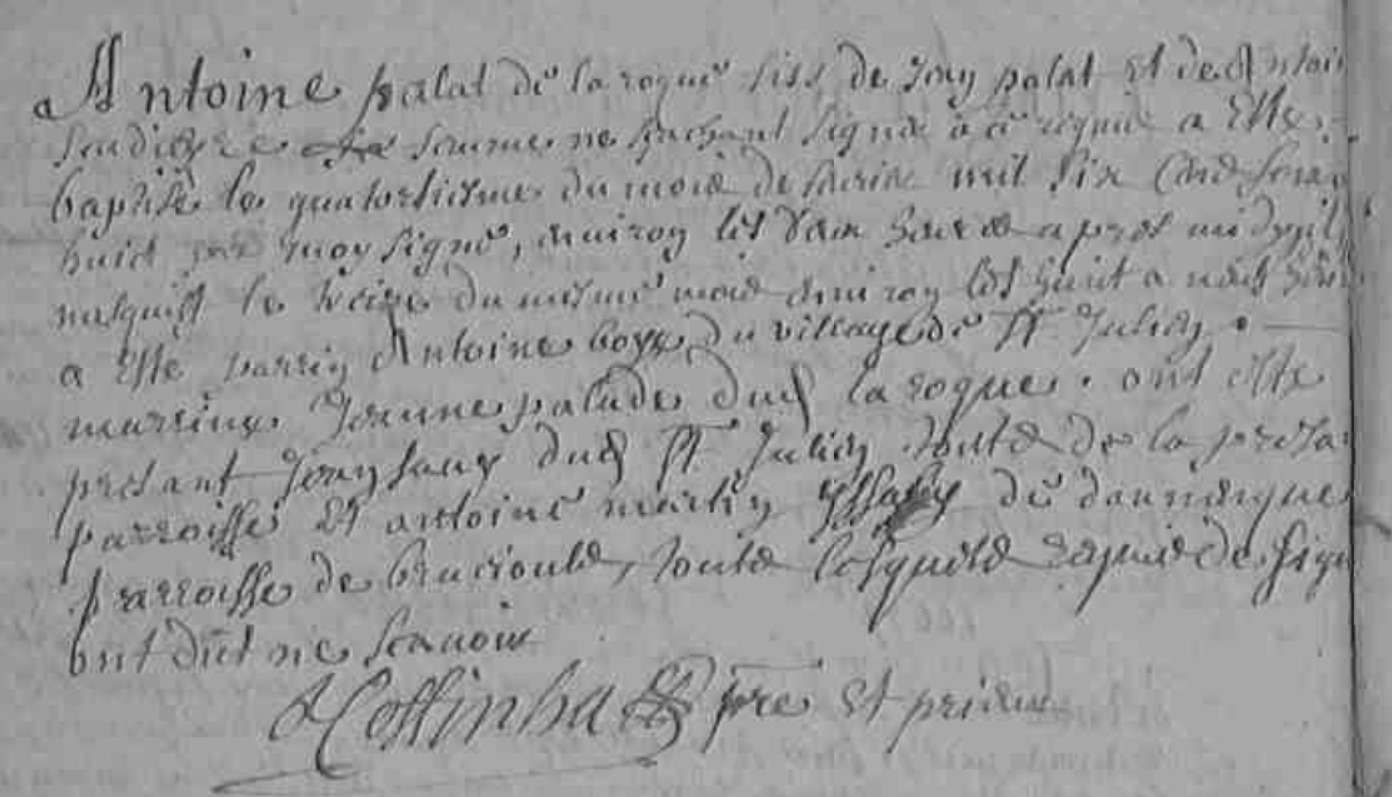 Antoine palat de la roque fils de Jean palat et de Antoin
sa femme ne sachant signe a ce requis a Este
baptisé le quatorsiesme du mois de mil six Cens soixa
huict par moy signé, environ les deux heures apres midy il
nasquist le treise du mesme mois environ les huit a neuf heur
a Este parrin Antoine boyer du village de St Julien
marrine Jeanne palade dud la roque. ont este
presant Jean dud St Julien touts de la presa
parroisse Et antoine martin de daumargue
parroisse de toutes lesquels requis de sign
ont dict ne scavoir
Coffinhal pre Et prieur